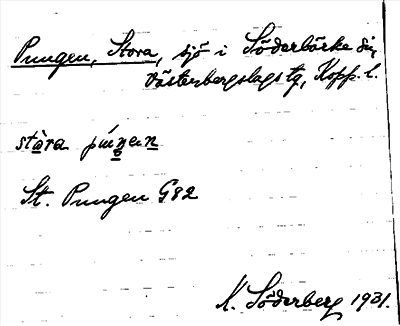 Pungen, Stora, sjö i Söderbärke sn,
Västerbergslags tg, Kopp. l.
stòra púŋen
St. Pungen G82
K. Söderberg 1931.